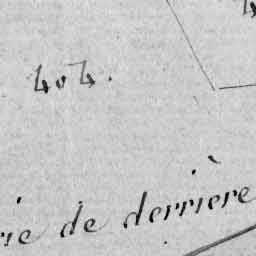 404.
de derrière